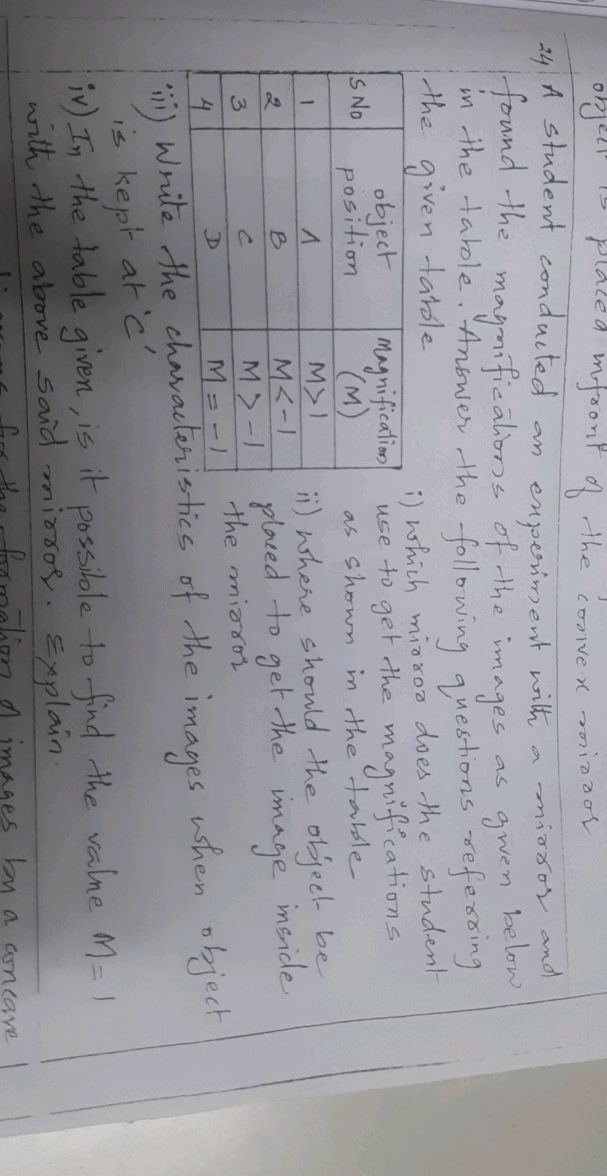 object is placed infront of the convex mirror
24) A student conducted an experiment with a mirror and
found the magnifications of the images as given below
in the table. Answer the following questions referring
the given table
S No object position Magnification (M)
1 A M>1
2 B M<-1
3 C M>-1
4 D M=-1
i) which mirror does the student
use to get the magnifications
as shown in the table
ii) where should the object be
placed to get the image inside
the mirror
iii) Write the characteristics of the images when object
is kept at 'C'
iv) In the table given, is it possible to find the value M=1
with the above said mirror. Explain.
for the formation of images by a concave